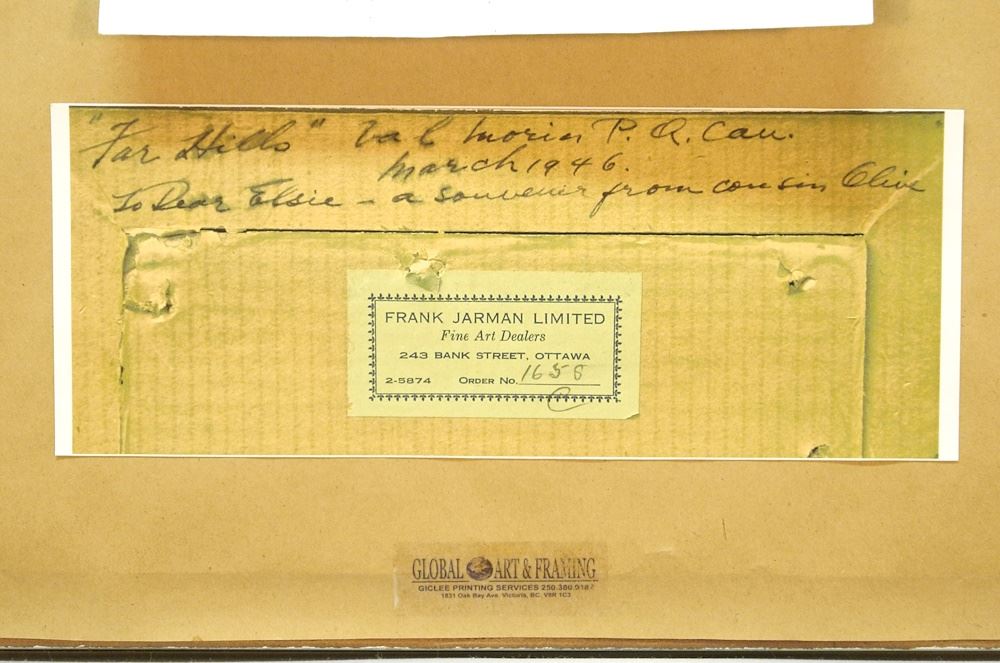 "Far Hills" Val Morin P. Q. Can.
March 1946.
To Dear Elsie - a souvenir from cousin Olive
FRANK JARMAN LIMITED
Fine Art Dealers
243 BANK STREET, OTTAWA
2-5874 ORDER No. 1658
C
GLOBAL ART & FRAMING
GICLEE PRINTING SERVICES 250.380.918
1831 Oak Bay Ave. Victoria, BC. V8R 1C3